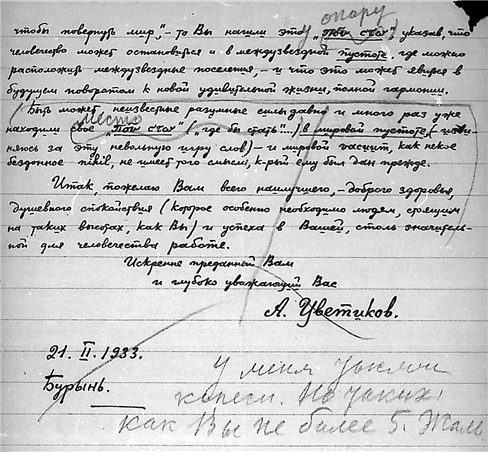 опору
чтобы повернуть мир", – то Вы нашли эту „ποῦ στῶ", указав, что
человечество может остановиться и в междузвездной пустоте, где можно
расположить междузвездные поселения, – и что это может явиться в
будущем поворотом к новой удивительной жизни, полной гармонии.
(Быть может, неизвестные разумные силы давно и много раз уже
место
находили свое „ποῦ στῶ" („где бы стать"...) в мировой пустоте (изви-
няюсь за эту невольную игру слов) – и мировой vacuum, как некое
бездонное nihil, не имеет того смысла, к-рый ему был дан прежде.
Итак, пожелаю Вам всего наилучшего, – доброго здоровья,
душевного спокойствия (которое особенно необходимо людям, стоящим
на таких высотах, как Вы) и успеха в Вашей, столь значитель-
ной для человечества работе.
Искренне преданный Вам
и глубоко уважающий Вас
А. Цветиков.
21. II. 1933.
Бурынь.
У меня
Но таких,
как Вы не более 5. Жаль